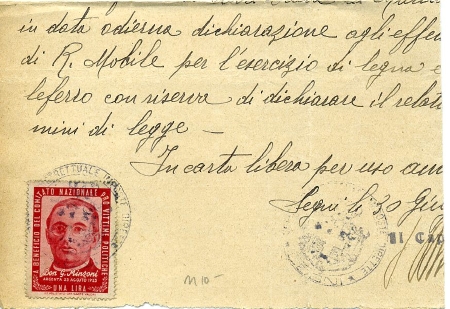 in data odierna dichiarazione agli effe
di R. Mobile per l'esercizio di legna e
leferro con riserva di dichiarare il relat
mini di legge —
In carta libera per uso am
Segni li 30 Giu
Il Cap
A BENEFICIO DEL COMITATO NAZIONALE PRO VITTIME POLITICHE
Don G. Minzoni
ARGENTA 23 AGOSTO 1923
UNA LIRA
M 10 -